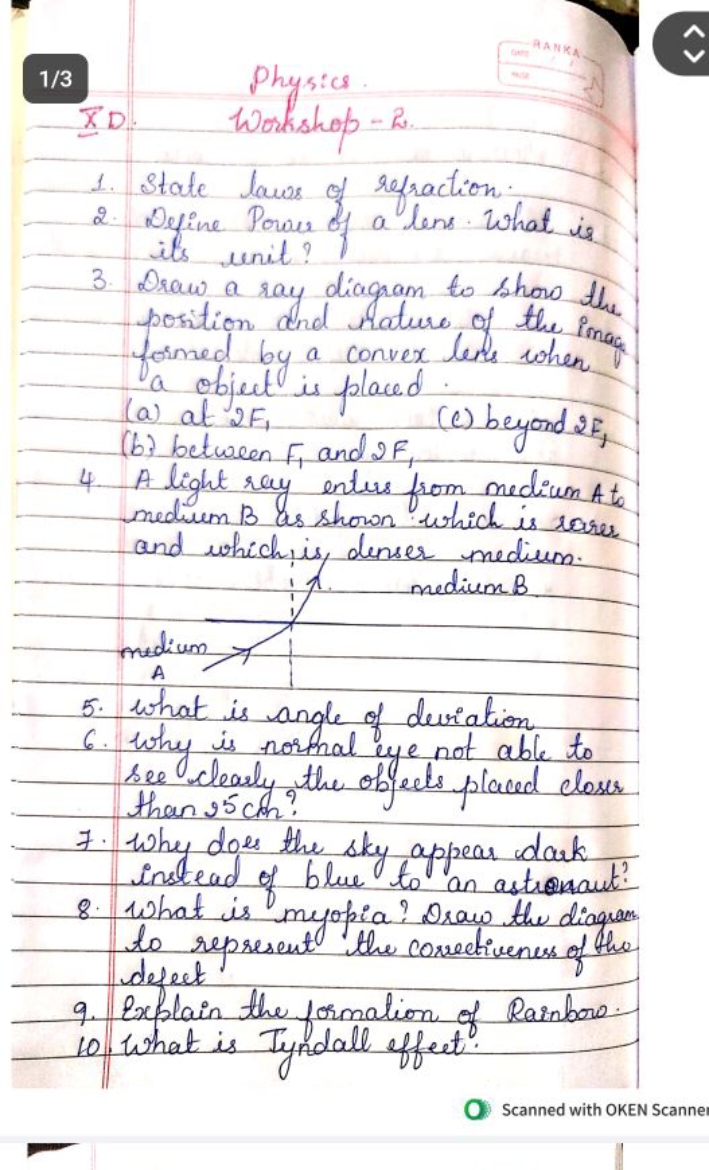 1/3
RANKA
DATE / /
PAGE
Physics.
X D. Workshop - 2.
1. State laws of refraction.
2. Define Power of a lens. What is
its unit?
3. Draw a ray diagram to show the
position and nature of the imag
formed by a convex lens when
a object is placed.
(a) at 2F1 (c) beyond 2F1
(b) between F1 and 2F1
4. A light ray enters from medium A to
medium B as shown. which is rarer
and which is denser medium.
medium B
medium
A
5. what is angle of deviation
6. why is normal eye not able to
see clearly the objects placed closer
than 25 cm?
7. Why does the sky appear dark
instead of blue to an astronaut?
8. What is myopia? Draw the diagram
to represent the correctiveness of the
defect
9. Explain the formation of Rainbow.
10. What is Tyndall effect?
Scanned with OKEN Scanner